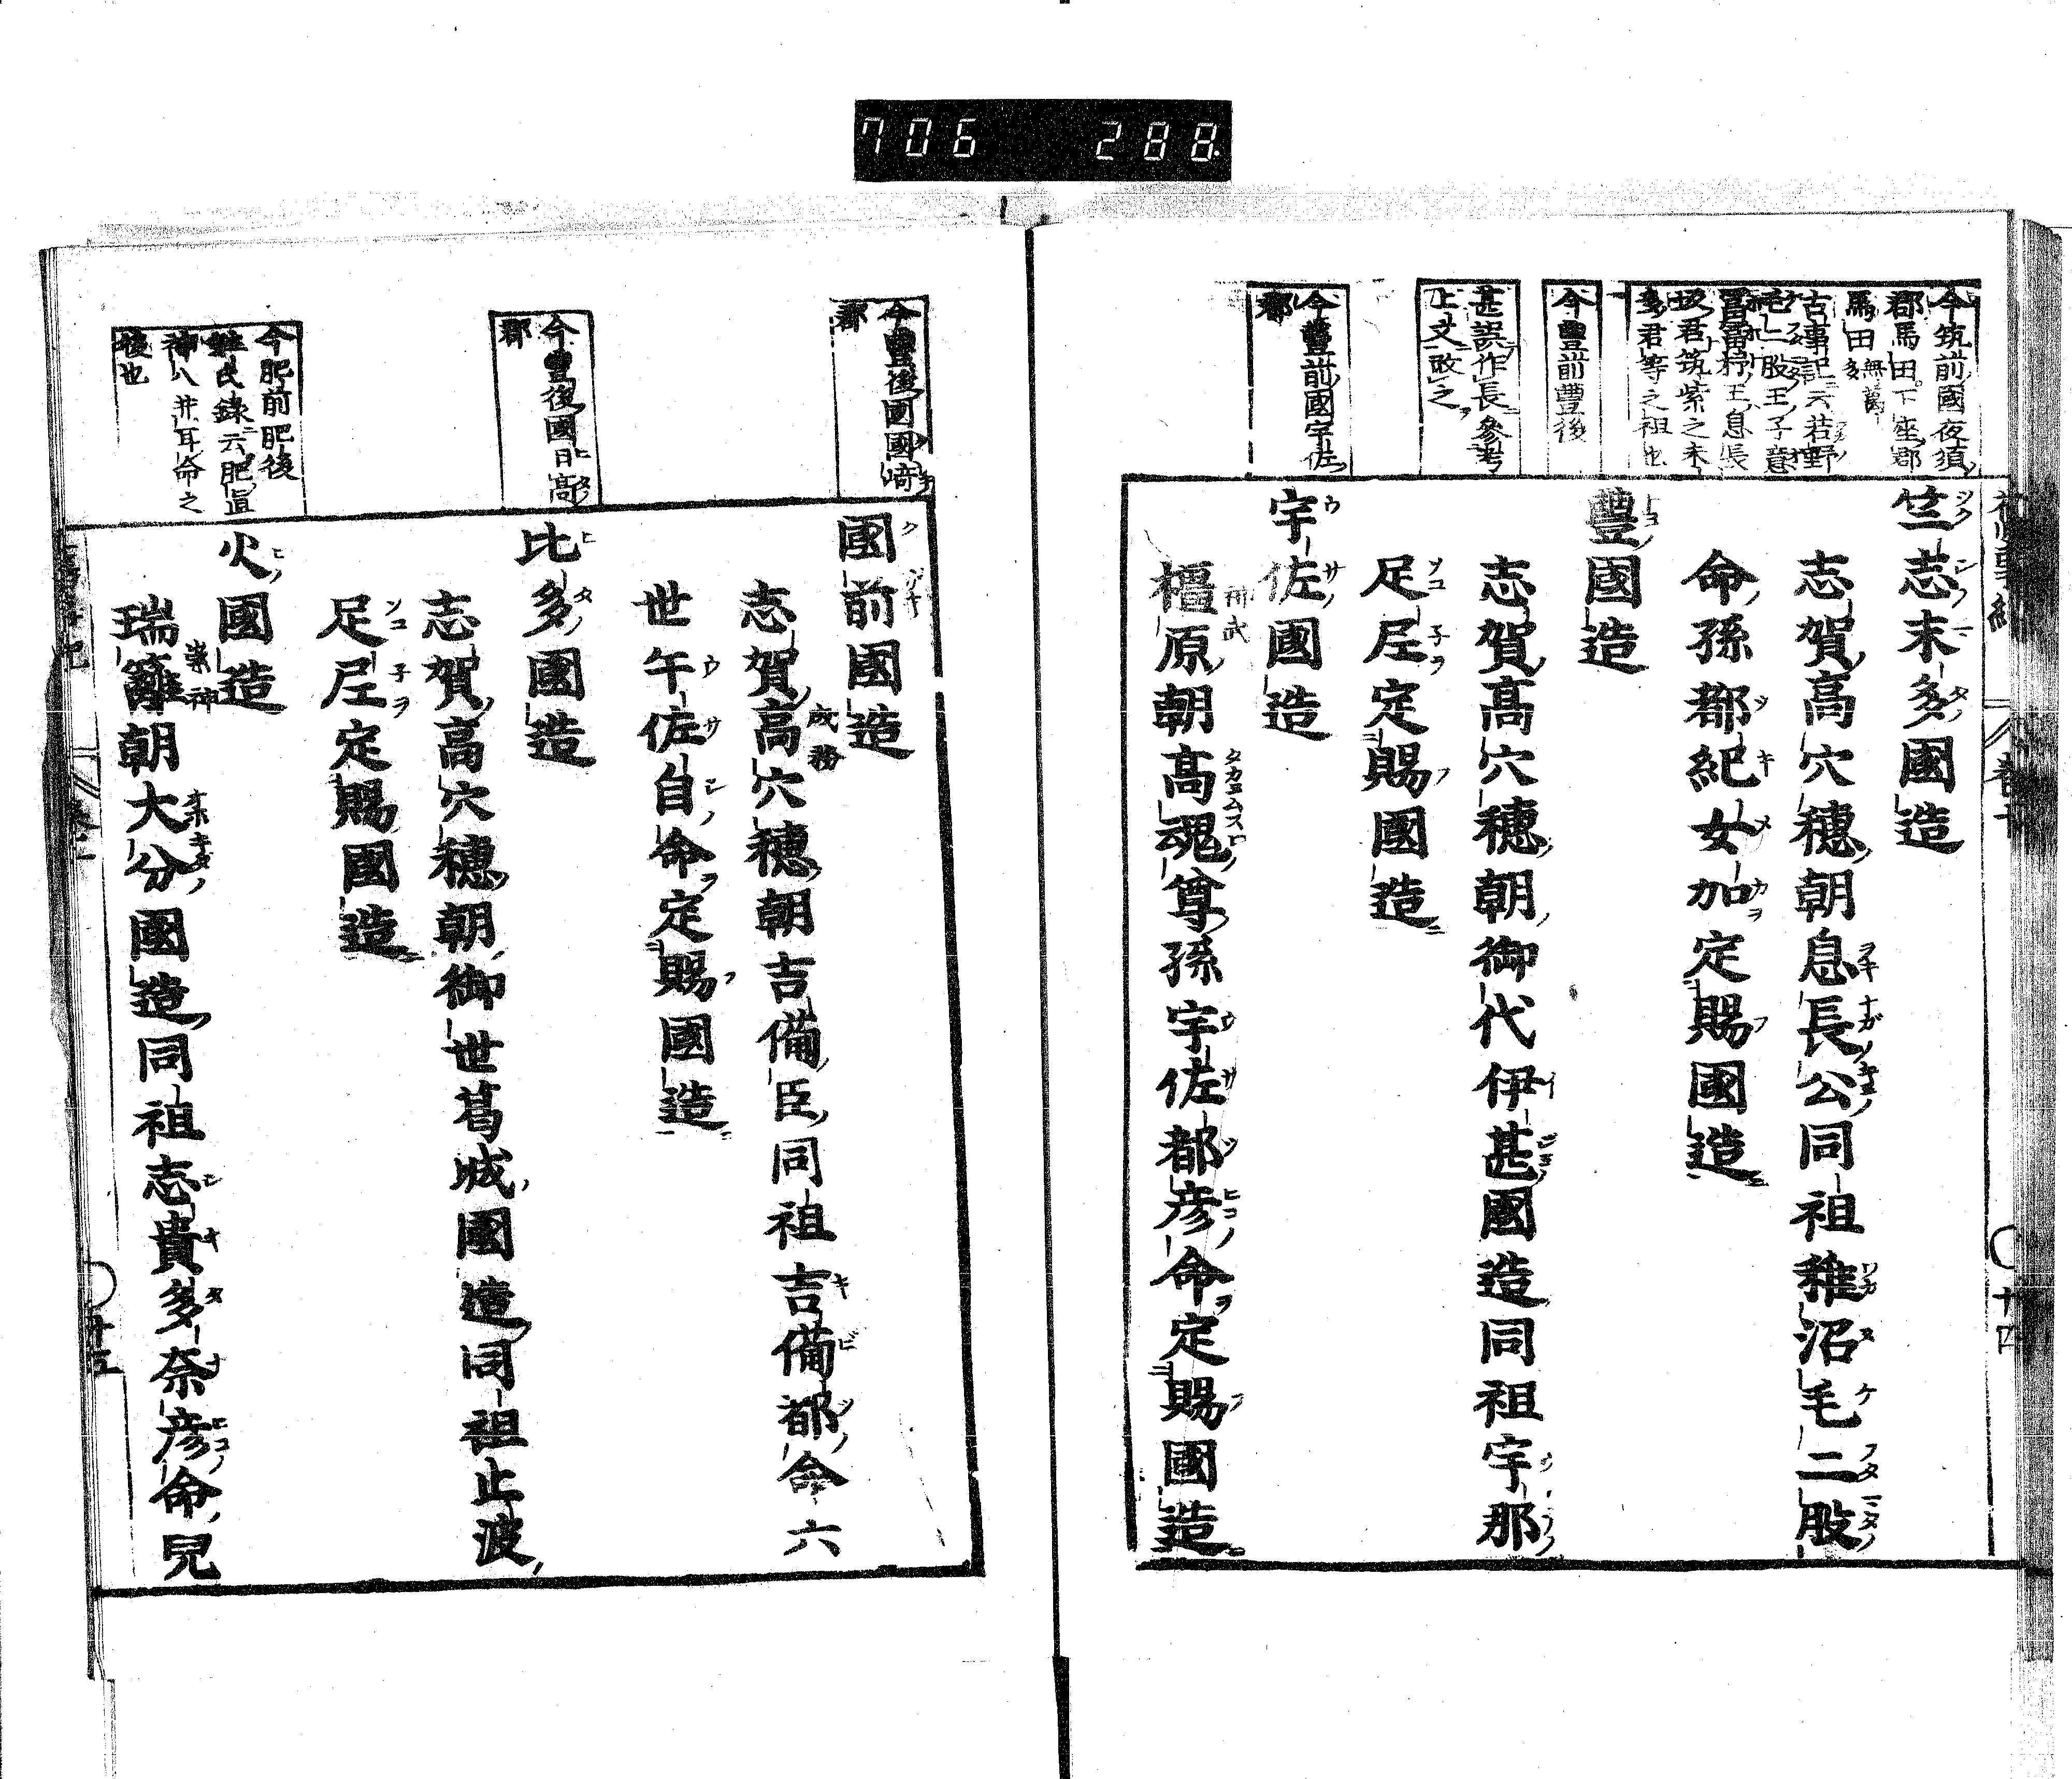 706 288
今筑前國夜須
郡馬田下座郡
馬田無萬多
古事記云若野
毛二股王子意
富富杼王息長
坂君筑紫之末
多君等之祖也
今豐前豐後
甚誤作長參考
上文改之
今豐前國宇佐
郡
竺志末多國造
志賀高穴穗朝息長公同祖稚沼毛二股
命孫都紀女加定賜國造
豐國造
志賀高穴穗朝御代伊甚國造同祖宇那
足尼定賜國造
宇佐國造
橿原朝高魂尊孫宇佐都彦命定賜國造
神武
卷十
十四
今豐後國國﨑
郡
今豐後國日高
郡
今肥前肥後
姓氏錄云肥直
神八井耳命之
後也
國前國造
志賀高穴穗朝吉備臣同祖吉備都命六
成務
世午佐自命定賜國造
比多國造
志賀高穴穗朝御世葛城國造同祖止波
足尼定賜國造
火國造
瑞籬朝大分國造同祖志貴多奈彦命兒
崇神
十五